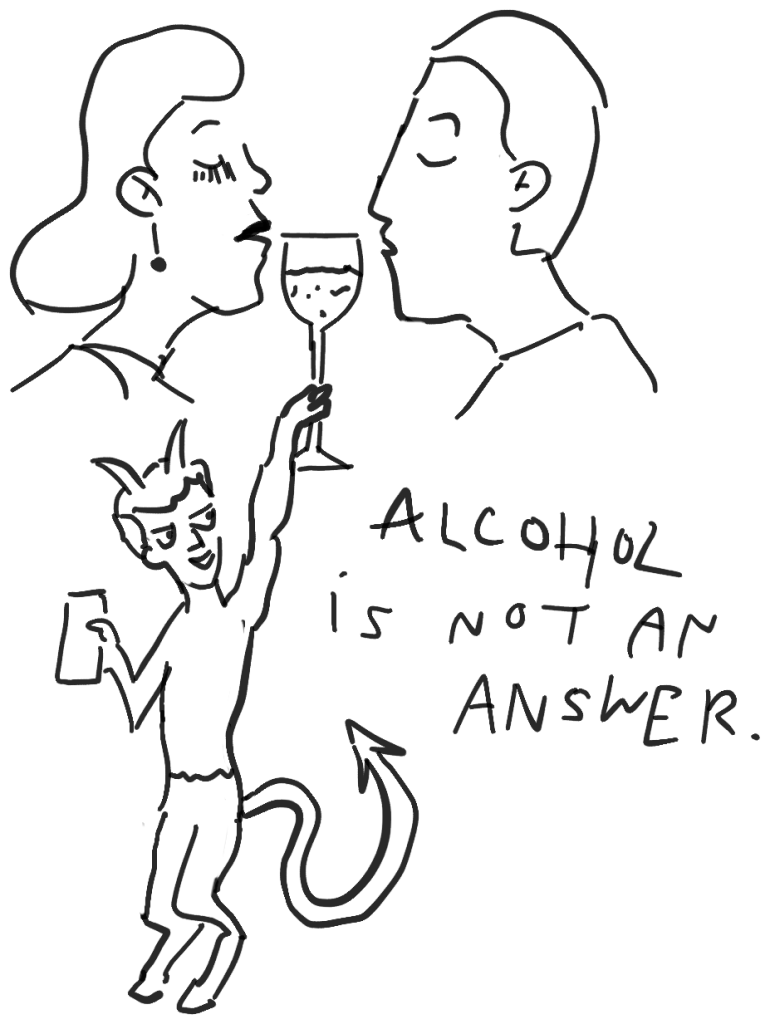 ALCOHOL
iS NOT AN
ANSWER.